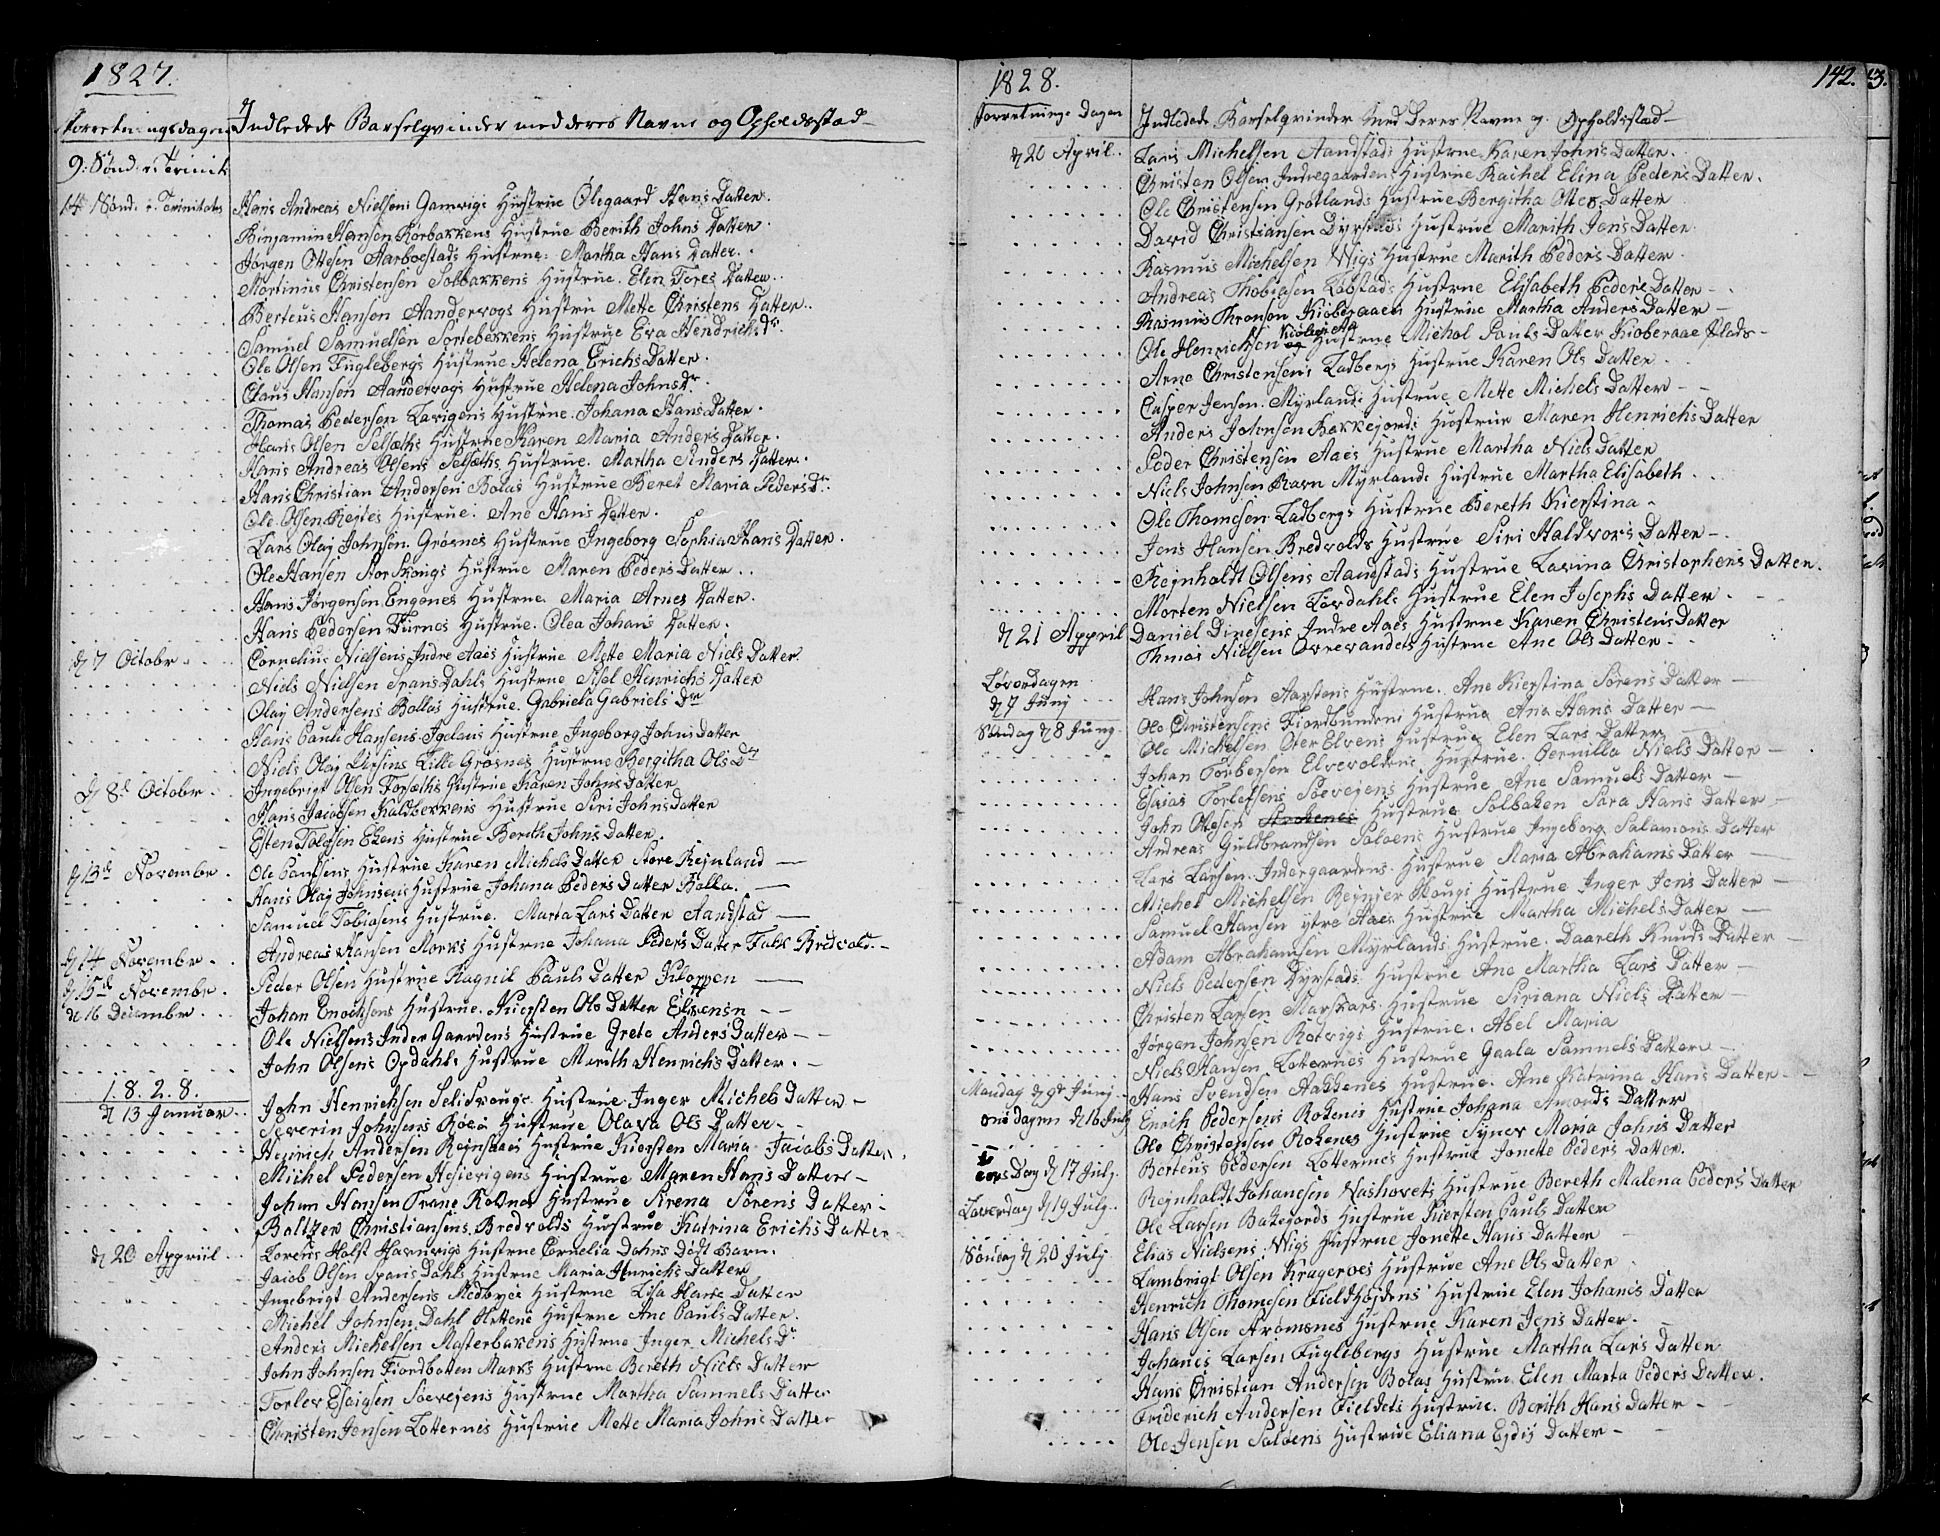 1827.
Forretningsdagen Indledede Barselqvinder med deres Navne og Opholdsstad
9: Sønd: e: Trinit:
14 Sønd. e. Trinitatis Hans Andreas Nielsens Gamvigs Hustrue Ølegaard Hans Datter.
Binjamin Hansen Rørbakkens Hustrue Berith Johns Datter
Jørgen Ottesen Aarboestads Hustrue: Martha Hans Datter.
Mortinus Christensen Solbakkens Hustrue. Elen Tores Datter.
Berteus Hansen Aandervogs Hustru Mette Christens Datter.
Samuel Samuelsen Sortebekkens Hustrue Eva Hendrichs Dr.
Ole Olsen Fuglebergs Hustrue Helena Erichs Datter.
Claus Hansen Aandervogs Hustrue Helena Johns Dr.
Thomas Pedersen Lavigens Hustrue. Johana Hans Datter.
Hans Olsen Selsæths Hustrue Karen Maria Anders Datter.
Hans Andreas Olsens Selsæths Hustrue. Martha Sinders Datter.
Hans Christian Andersen Bolas Hustrue Beret Maria Peders Dr.
Ole Olsen Rejtes Hustrue. Ane Hans Datter.
Lars Olaj Johnsen. Grøsnes Hustrue Ingeborg Sophia Hans Datter.
Ole Hansen Storskougs Hustrue Maren Peders Datter.
Hans Jørgensen Engenes Hustrue. Maria Arnes Datter.
Hans Pedersen Furnes Hustrue. Olea Johans Datter.
d 7 Octobr Cornelius Nielsens Indre Aaes Hustrue Mette Maria Niels Datter.
Niels Nielsen Spansdahls Hustrue Sisel Henrichs Datter
Olaj Andersens Bollas Hustrue. Gabriela Gabriels Dr
Hans Pauli Hansens Igelans Hustrue Ingeborg Johns Datter
Niels Olaj Lille Grøsnes Hustrue Bergitha Ols Dr
d 8d Octobr. Ingebrigt Olsen Forsæths Hustrue Karen Johns Datter
Hans Jacobsen Kaldbekkens Hustrue Siri Johns Datter
Esten Tolofsen Ekens Hustrue Berith Johns Datter.
d 13d November. Ole Paulsens Hustrue Karen Michels Datter Store Rejnland
Hans Olaj Johnsens Hustrue Johana Peders Datter Balla.
Samuel Tobiasens Hustrue. Marta Lars Datter Aandstad
d 14 Novembr. Andreas Hansen Morks Hustrue Johana Peders Datter Bredvold.
d 15d Novembr. Peder Olsen Hustrue Ragnil Pauls Datter Kloppen
d 16 Decembr. Johan Enochsens Hustrue. Kiersten Ols Datter Elvenes
Ole Nielsens Inder Gaardens Hustrue Grete Anders Datter
John Olsens Opdahls Hustrue Merith Henrichs Datter.
1.8.2.8.
d 13 Januar. John Henrichsen Selsskougs Hustrue Inger Michels Datter
Severin Johnsens Hustrue Olava Ols Datter
Heinrich Andersen Rejnsaaes Hustrue Kiersten Maria Jacobs Datter.
Michel Pedersen Hesjevigens Hustrue Maren Hans Datter
Johan Hansen Trane Roknes Hustrue Sirena Sørens Datter
Baltzer Christiansens Bredvolds Hustrue Katrina Erichs Datter
d 20 Appriil Lorents Holst Havnvigs Hustrue Cornelia Døhns Dødt Barn.
Jacob Olsen Spans Dahls Hustrue Maria Henrichs Datter
Ingebrigt Andersens Medbyes Hustrue Lisa Hans Datter
Michel Johnsen. Dahl Slettens Hustrue Ane Pauls Datter.
Anders Michelsen Mosterbakens Hustrue Inger Michels Dr
John Johnsen Fiordbotten Marks Hustrue Bereth Niels Datter
Torlev Esaigsen Søevejens Hustrue Martha Samuels Datter
Christen Jensen Lotternes Hustrue Mette Maria Johns Datter
1828.
142.
Forretnings Dagen Indledede Barselqvinder med Deres Navne og Opholdsstad
d 20 April. Lars Michelsen Aandstads Hustrue Karen Johns Datter.
Christen Olsen Indregaardens Hustrue Rachel Elina Peders Datter.
Ole Christensen Grøtlands Hustrue Bergitha Ottes Datter
David Christiansen Dyrstads Hustrue Marith Jens Datter
Rasmus Michelsen Wigs Hustrue Marith Peders Datter
Andreas Thobiasen Løbstads Hustrue Elisabeth Peders Datter
Rasmus Thronsen Kioberaaen Hustrue Martha Anders Datter
Ole Henrichsen Hustrue Michol Pauls Datter Kioberaae Plads
Arne Christensens Ladbergs Hustrue Karen Ols Datter
Casper Jenson. Myrlands Hustrue Mette Michels Datter
Anders Johnsen Bakkejords Hustrue Maren Henrichs Datter
Peder Christensen Aaes Hustrue Martha Niels Datter
Niels Johnsen Ravn Myrlands Hustrue Martha Elisabeth
Ole Thomesen Ladbergs Hustrue Bereth Kierstina
Jens Hansen Bredvolds Hustrue Siri Haldvors Datter
Rejnholdt Olsens Aandstads Hustrue Lavina Christophers Datter.
Morten Nielsen Løvdahls Hustrue Elen Josephs Datter
d 21 Appril Daniel Dinesens Indre Aaes Hustrue Karen Christens Datter
Thmas Nielsen Øvrevandets Hustrue Ane Ols Datter
Løverdagen
d 7 Junj Hans Johnsen Aarstens Hustrue. Ane Kierstina Sørens Datter
Ole Christensens Fiordbundens Hustrue Ana Hans Datter
Søndag d 8 Juny Ole Michelsen Oter Elvens Hustrue Elen Lars Datter
Johan Torbersen Elvevoldens Hustrue. Pernilla Niels Datter
Esaias Torlefsens Søevejens Hustrue Ane Samuels Datter
John Otesen Hustrue Solbaken Sara Hans Datter
Andreas Guldbrandsen Saloens Hustrue Ingeborg Salamons Datter
Lars Larsen. Indergaardens. Hustrue Maria Abrahams Datter
Michel Michelsen Rejnjer Skougs Hustrue Inger Jens Datter
Samuel Hansen ytre Aaes Hustrue Martha Michels Datter
Adam Abrahamsen Myrlands Hustrue. Daareth Knuds Datter
Niels Pedersen Dyrstads Hustrue Ane Martha Lars Datter
Christen Larsen Marskars. Hustrue Siriana Niels Datter
Jørgen Johnsen Rotvigs Hustrue. Abel Maria
Niels Hansen Lotternes Hustrue Gaala Samuels Datter
Mandag d 9d Junj Hans Svendsen Aakkenes Hustrue. Ane Katrina Hans Datter
onsdagen d 16 July Enrich Pedersens Rokenes Hustrue Johana Amonds Datter
Ole Christensen Rokenes Hustrue Synev Maria Johns Datter
Berteus Pedersen Lotternes Hustrue Jonette Peders Datter.
Dag d 17 July. Rejnholdt Johanesen Nashovets Hustrue Bereth Malena Peders Datter
Løverdag d 19 July. Ole Larsen Bakejords Hustrue Kiersten Pauls Datter
Elias Nielsens. Wigs Hustrue Jonette Hans Datter
Søndag d 20 July Lambrigt Olsen Kragerøes Hustrue Ane Ols Datter
Henrich Thomesen Fieldhøjdens Hustrue Elen Johanes Datter
Hans Olsen Arømsnes Hustrue Karen Jens Datter
Johanes Larsen Fuglebergs Hustrue Martha Lars Datter
Hans Christian Andersen Bolas Hustru Elen Marta Peders Datter.
Friderich Andersen Fieldets Hustrue. Berith Hans Datter
Ole Jensen Saloens Hustrue Eliana Ejdis Datter